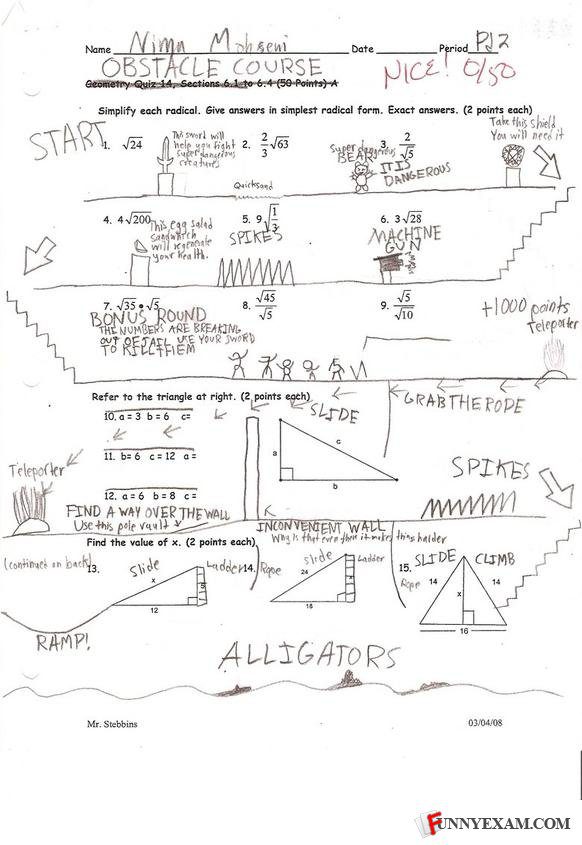 Name Nima Mohseni Date Period Pd 2
OBSTACLE COURSE NICE! 0/50
Geometry Quiz 14, Sections 6.1 to 6.4 (50 Points) A
Simplify each radical. Give answers in simplest radical form. Exact answers. (2 points each)
START
1. √24
This sword will
help you fight
super dangerous
creatures
2. 2/3 √63
Quicksand
3. 2/√5
Super dangerous
BEAR
IT IS
DANGEROUS
Take this shield
You will need it
4. 4√200
This egg salad
sandwhich
will regenerate
your health.
5. 9√1/3
SPIKES
6. 3√28
MACHINE
GUN
7. √35 • √5
8. √45/√5
9. √5/√10
BONUS ROUND
THE NUMBERS ARE BREAKING
OUT OF JAIL USE YOUR SWORD
TO KILL THEM
+1000 points
Teleporter
Refer to the triangle at right. (2 points each)
SLIDE
GRAB THE ROPE
10. a = 3 b = 6 c=
11. b= 6 c = 12 a=
12. a = 6 b = 8 c=
a
c
b
Teleporter
SPIKES
FIND A WAY OVER THE WALL
Use this pole vault
INCONVENIENT WALL
Why is that even there it makes things harder
Find the value of x. (2 points each)
(continued on back)
13.
Slide
Ladder
x
12
14.
Rope
slide
Ladder
24
x
18
15.
SLIDE
CLIMB
Rope
14
14
x
16
RAMP!
ALLIGATORS
Mr. Stebbins 03/04/08
FUNNYEXAM.COM